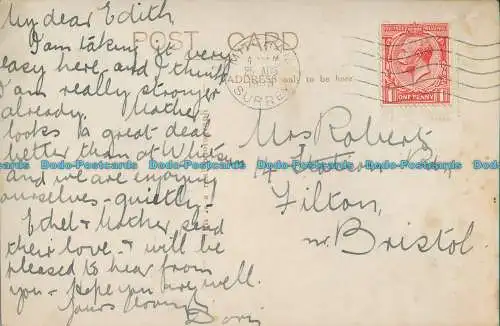 My dear Edith
I am taking it very
easy here, and I think
I am really stronger
already. Mother
looks a great deal
better than at
and we are enjoying
ourselves - quietly -
Ethel & Mother send
their love - & will be
pleased to hear from
you - Hope you are well.
Yours
Doris
POST CARD
ADDRESS only to be here
SURREY
ONE PENNY
Mrs Roberts
14
Filton,
nr. Bristol.
Dodo-Postcards Dodo-Postcards Dodo-Postcards Dodo-Postcards